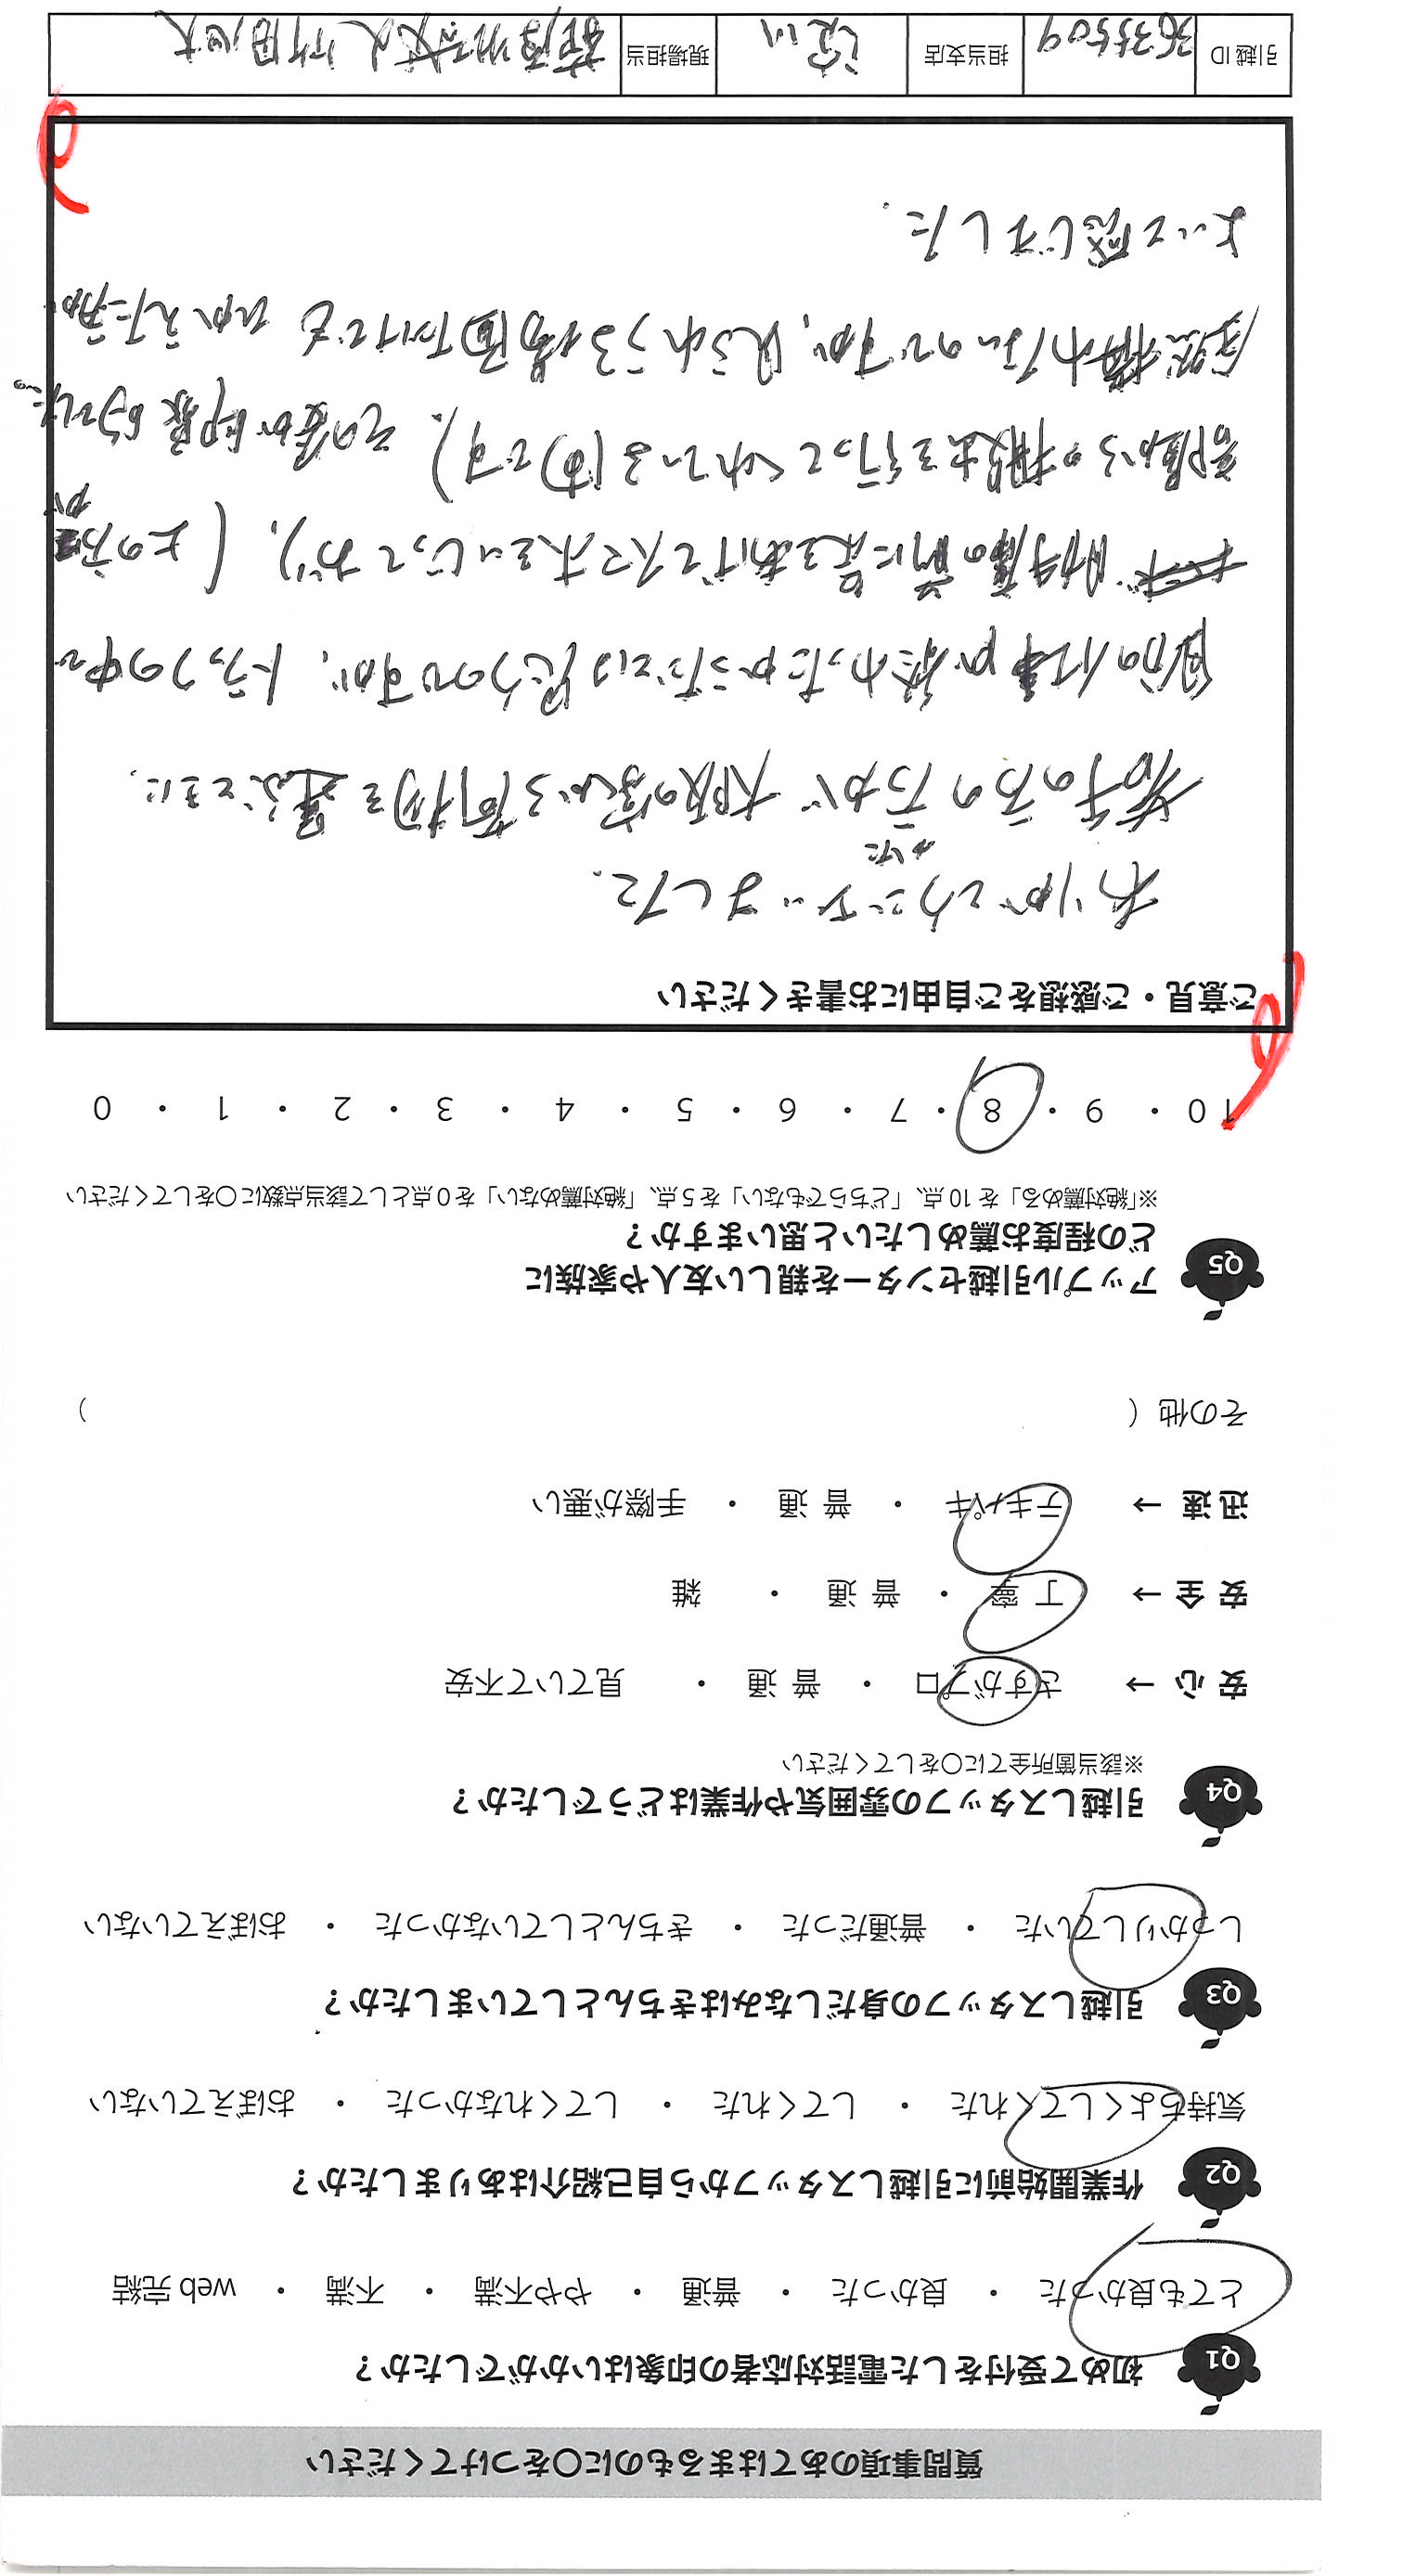 質問事項のあてはまるものに○をつけてください
Q1 初めて受付をした電話対応者の印象はいかがでしたか？
とても良かった ・ 良かった ・ 普通 ・ やや不満 ・ 不満 ・ web 完結
Q2 作業開始前に引越しスタッフから自己紹介はありましたか？
気持ちよくしてくれた ・ してくれた ・ してくれなかった ・ おぼえていない
Q3 引越しスタッフの身だしなみはきちんとしていましたか？
しっかりしていた ・ 普通だった ・ きちんとしていなかった ・ おぼえていない
Q4 引越しスタッフの雰囲気や作業はどうでしたか？
※該当箇所全てに○をしてください
安 心 → さすがプロ ・ 普 通 ・ 見ていて不安
安 全 → 丁 寧 ・ 普 通 ・ 雑
迅 速 → テキパキ ・ 普 通 ・ 手際が悪い
その他（ ）
Q5 アップル引越センターを親しい友人や家族に
どの程度お薦めしたいと思いますか？
※「絶対薦める」を 10 点、「どちらでもない」を 5 点、「絶対薦めない」を 0 点として該当点数に○をしてください
10 ・ 9 ・ 8 ・ 7 ・ 6 ・ 5 ・ 4 ・ 3 ・ 2 ・ 1 ・ 0
ご意見・ご感想をご自由にお書きください
ありがとうございました。
若手の方の方が 大阪の家から荷物を運ぶときに、
自分の仕事が終わったからだとは思うのですが、トラックの中で
助手席の前に足をあげてスマホをいじっており、(上の方が
部屋からの搬出を行ってくれている間です)、その姿が印象的でした。
全然構わないのですが、見られうる場面だけでも ひかえた方が
よいと感じました。
引越 ID 3635509 担当支店 淀川 現場担当 竹田